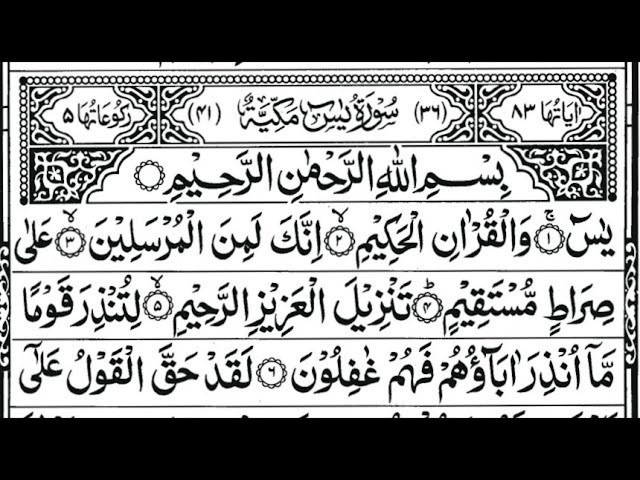 اٰیاتها ۸۳ (۳۶) سُوْرَةُ یٰسٓ مَکِّیَّةٌ (۴۱) رکوعاتها ۵
بِسْمِ اللّٰهِ الرَّحْمٰنِ الرَّحِیْمِ
یٰسٓ ۚ﴿۱﴾ وَالْقُرْاٰنِ الْحَكِیْمِ ۙ﴿۲﴾ اِنَّكَ لَمِنَ الْمُرْسَلِیْنَ ۙ﴿۳﴾ عَلٰی
صِرَاطٍ مُّسْتَقِیْمٍ ؕ﴿۴﴾ تَنْزِیْلَ الْعَزِیْزِ الرَّحِیْمِ ۙ﴿۵﴾ لِتُنْذِرَ قَوْمًا
مَّاۤ اُنْذِرَ اٰبَآؤُهُمْ فَهُمْ غٰفِلُوْنَ ﴿۶﴾ لَقَدْ حَقَّ الْقَوْلُ عَلٰۤی